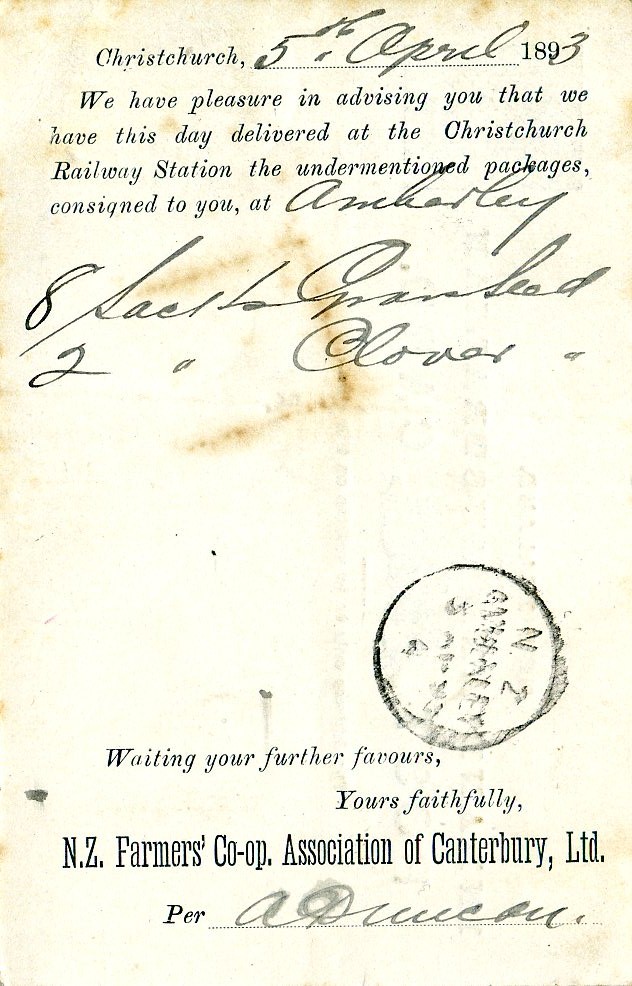 Christchurch, 5th April 1893
We have pleasure in advising you that we
have this day delivered at the Christchurch
Railway Station the undermentioned packages,
consigned to you, at Amberley
8 Sacks Grass Seed
2 " Clover "
N Z
AMBERLEY
Waiting your further favours,
Yours faithfully,
N.Z. Farmers' Co-op. Association of Canterbury, Ltd.
Per A Duncan.